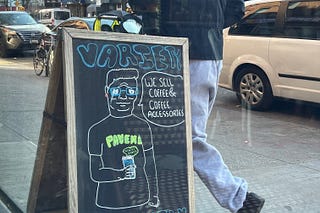 VARIETY
WE SELL
COFFEE &
COFFEE
ACCESSORIES